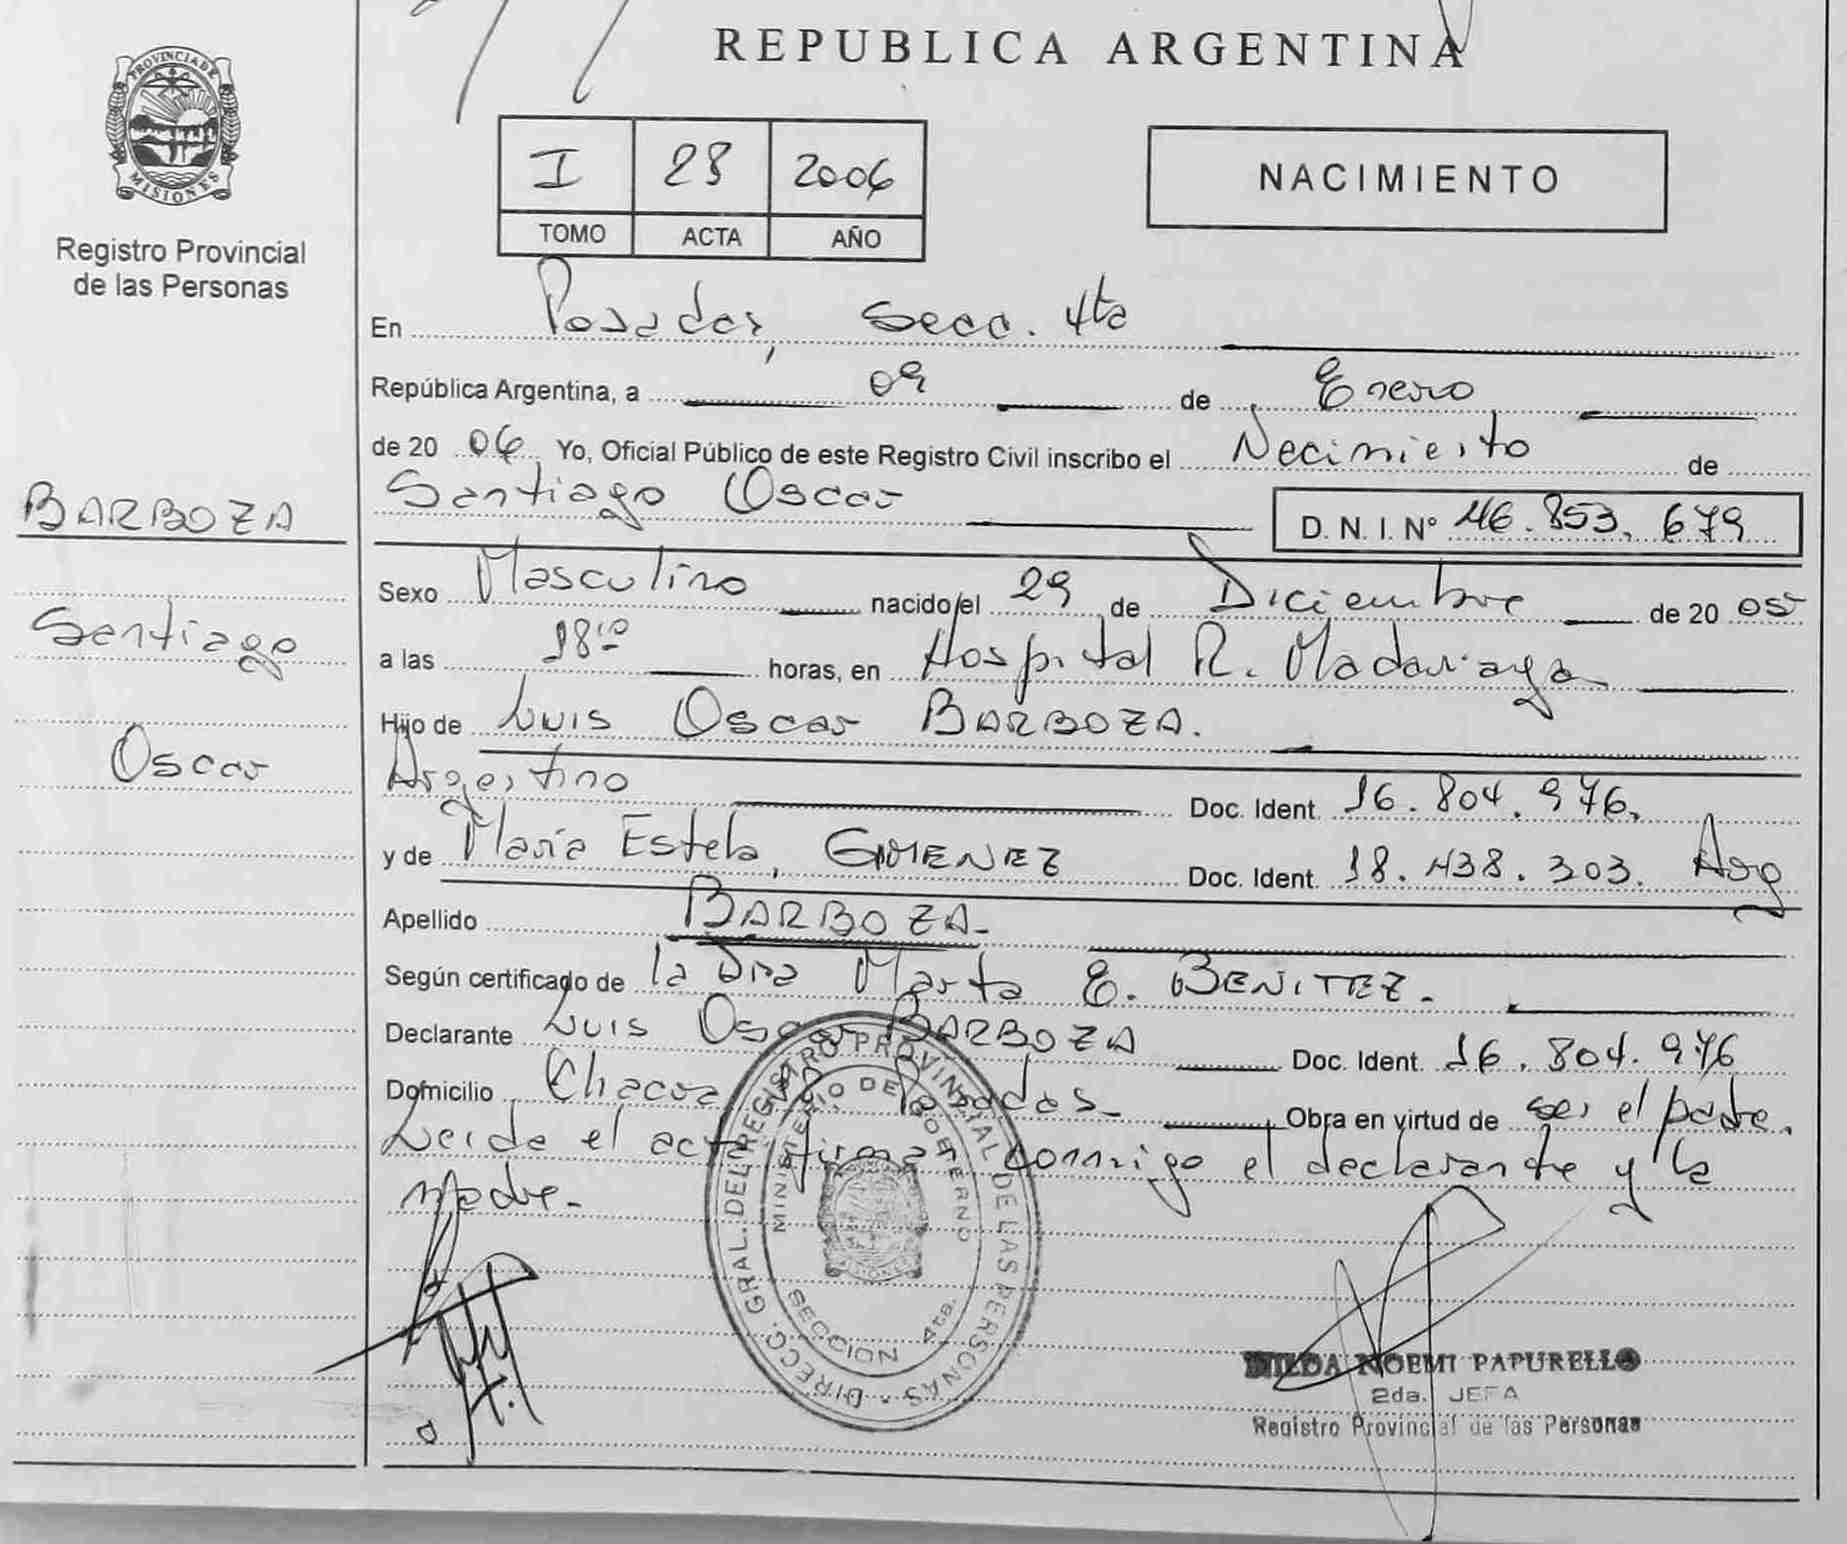 REPUBLICA ARGENTINA
PROVINCIA DE
MISIONES
Registro Provincial
de las Personas
I 23 2006
TOMO ACTA AÑO
NACIMIENTO
En Posadas, Secc. 4ta
República Argentina, a 09 de Enero
de 20 06 Yo, Oficial Público de este Registro Civil inscribo el Nacimiento de
Santiago Oscar D. N. I. N° 46.853.679
BARBOZA
Santiago
Oscar
Sexo Masculino nacido/el 29 de Diciembre de 20 05
a las 18 horas, en Hospital R. Madariaga
Hijo de Luis Oscar BARBOZA.
Argentino Doc. Ident. 16.804.976.
y de María Estela, GIMENEZ Doc. Ident. 18.438.303. Arg
Apellido BARBOZA-
Según certificado de la Dra Marta E. BENITEZ.-
Declarante Luis Oscar BARBOZA Doc. Ident. 16.804.976
Domicilio Chacra Posadas- Obra en virtud de ser el padre.
Leida el acta firman conmigo el declarante y la
madre.-
DIRECC. GRAL. DEL REGISTRO PROVINCIAL DE LAS PERSONAS
MINISTERIO DE GOBIERNO
MISIONES
SECCION 4ta.
NOEMI PAPURELLO
2da. JEFA
Registro Provincial de las Personas